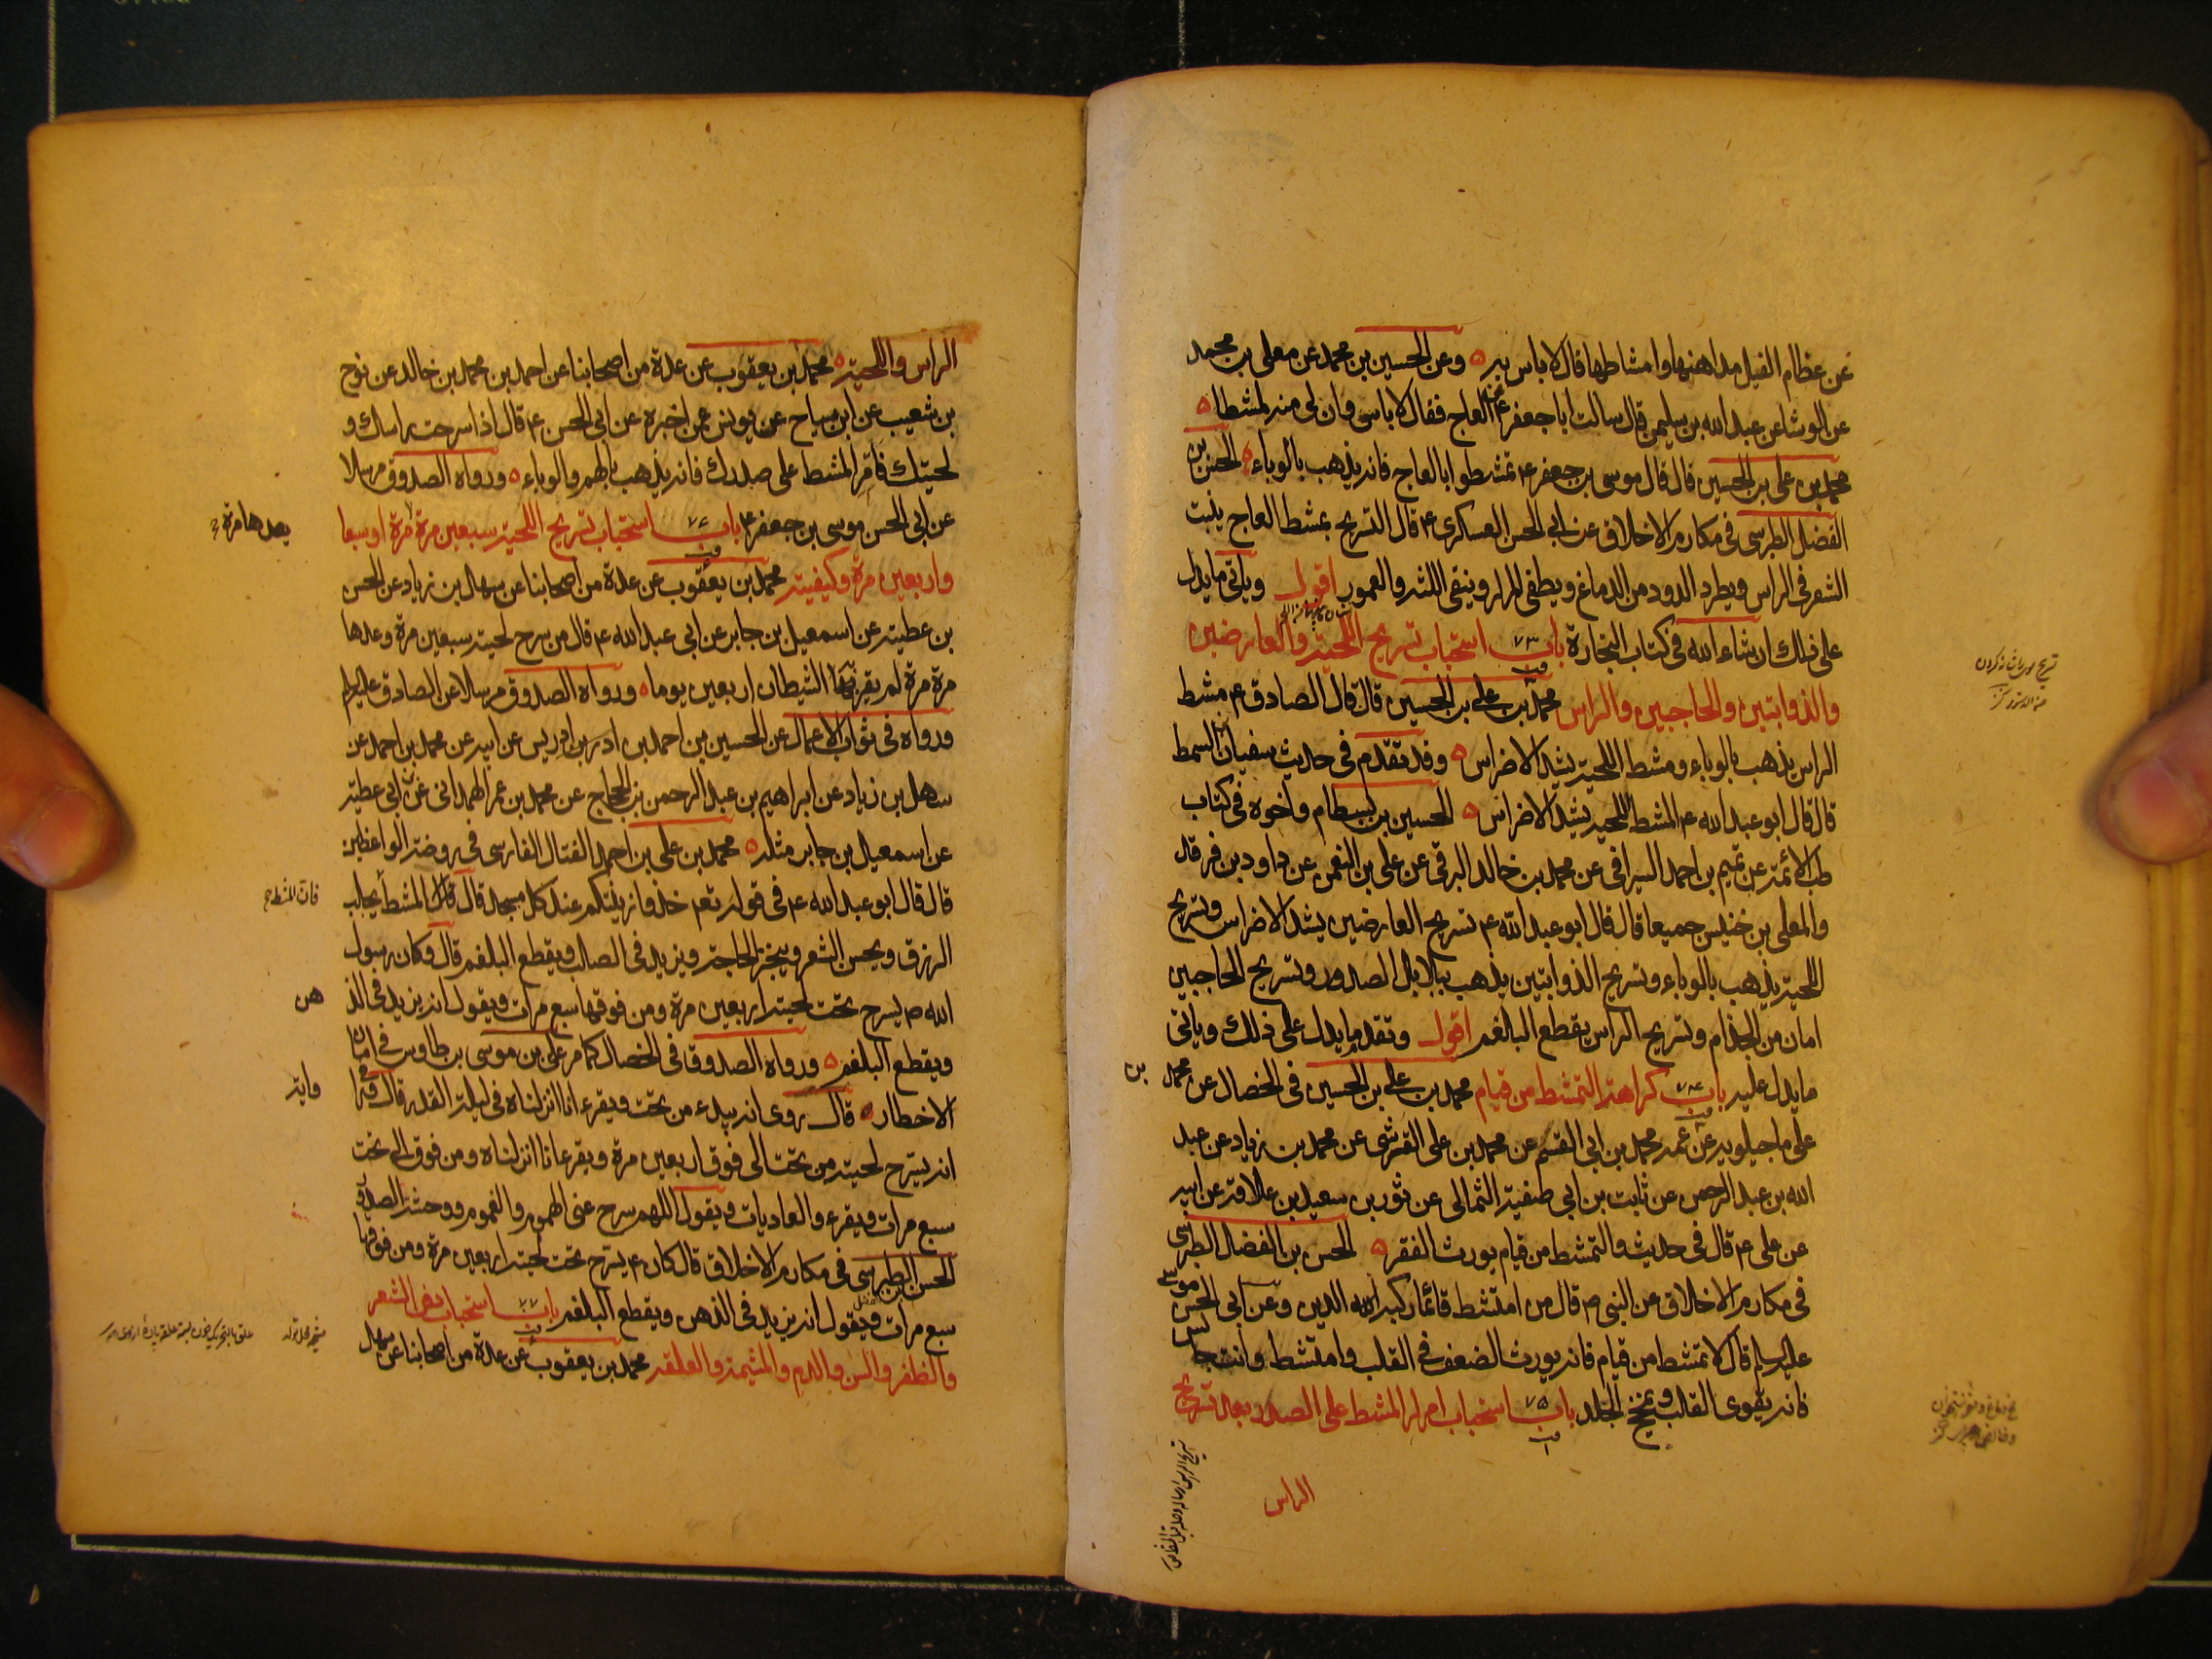 عن عظام الفيل مداهنها وامشاطها قال لا باس به ه وعن الحسين بن محمد عن معلى بن محمد
عن الوشا عن عبد الله بن سليمن قال سالت ابا جعفر ع عن العاج فقال لا باس وان لى منه لمشطا ه
محمد بن على بن الحسين قال قال موسى بن جعفر ع تمشطوا بالعاج فانه يذهب بالوباء ه الحسن بن
الفضل الطبرسى فى مكارم الاخلاق عن ابى الحسن العسكرى ع قال التسريح بمشط العاج ينبت
الشعر فى الراس ويطرد الدود من الدماغ ويطفى المرار وينقى اللثه والعمور اقول وياتى ما يدل
على ذلك ان شاء الله فى كتاب التجارة باب ٧٣ استحباب تسريح اللحيه والعارضين
والذوابتين والحاجبين والراس محمد بن على بن الحسين قال قال الصادق ع مشط
الراس يذهب بالوباء ومشط اللحيه يشد الاضراس ه وقد تقدم فى حديث سفيان بن السمط
قال قال ابو عبد الله ع المشط للحيه يشد الاضراس ه الحسين بن بسطام واخوه فى كتاب
طب الائمه عن تميم بن احمد السيرافى عن محمد بن خالد البرقى عن على بن النعمن عن داود بن فرقد
والمعلى بن خنيس جميعا قال قال ابو عبد الله ع تسريح العارضين يشد الاضراس وتسريح
اللحيه يذهب بالوباء وتسريح الذوابتين يذهب ببلابل الصدور وتسريح الحاجبين
امان من الجذام وتسريح الراس يقطع البلغم اقول وتقدم ما يدل على ذلك وياتى
ما يدل عليه باب ٧٤ كراهة التمشط من قيام محمد بن على بن الحسين فى الخصال عن محمد بن
على ماجيلويه عن عمه محمد بن ابى القسم عن محمد بن على القرشى عن محمد بن زياد عن عبد
الله بن عبد الرحمن عن ثابت بن ابى صفيه الثمالى عن ثور بن سعيد بن علاقه عن ابيه
عن على ع قال فى حديث والتمشط من قيام يورث الفقر ه الحسن بن الفضل الطبرسى
فى مكارم الاخلاق عن النبى ص قال من امتشط قائما ركبه الله الدين وعن ابى الحسن موسى
عليه السلم قال لا تمتشط من قيام فانه يورث الضعف فى القلب وامتشط وانت جالس
فانه يقوى القلب ويمخخ الجلد باب ٧٥ استحباب امرار المشط على الصدر بعد تسريح
الراس
الراس واللحيه ه محمد بن يعقوب عن عدة من اصحابنا عن احمد بن محمد بن خالد عن نوح
بن شعيب عن ابن مياح عن يونس عمن اخبره عن ابى الحسن ع قال اذا سرحت راسك و
لحيتك فامر المشط على صدرك فانه يذهب بالهم والوباء ه ورواه الصدوق مرسلا
عن ابى الحسن موسى بن جعفر ع باب ٧٦ استحباب تسريح اللحيه سبعين مرة مرة مرة او سبعا
يعدها مرة
واربعين مرة وكيفيته محمد بن يعقوب عن عدة من اصحابنا عن سهل بن زياد عن الحسن
بن عطيه عن اسمعيل بن جابر عن ابى عبد الله ع قال من سرح لحيته سبعين مرة وعدها
مرة مرة لم يقربه الشيطان اربعين يوما ه ورواه الصدوق مرسلا عن الصادق عليه السلم
ورواه فى ثواب الاعمال عن الحسين بن احمد بن ادريس عن ابيه عن محمد بن احمد عن
سهل بن زياد عن ابراهيم بن عبد الرحمن بن الحجاج عن محمد بن عمر الهمدانى عن ابى عطيه
عن اسمعيل بن جابر مثله ه محمد بن على بن احمد الفتال الفارسى فى روضة الواعظين
قال قال ابو عبد الله ع فى قوله تعم خذوا زينتكم عند كل مسجد قال المشط يجلب
فان المشط
الرزق ويحسن الشعر وينجز الحاجه ويزيد فى الصلب ويقطع البلغم قال وكان رسول
الله ص يسرح تحت لحيته اربعين مرة ومن فوقها سبع مرات ويقول انه يزيد فى الذ
هن
ويقطع البلغم ه ورواه الصدوق فى الخصال كما مر على بن موسى بن طاوس فى امان
الاخطار ه قال روى انه يبدء من تحت ويقرء انا انزلناه فى ليلة القدر قال وفى ر
وايه
انه يسرح لحيته من تحت الى فوق اربعين مرة ويقرء انا انزلناه ومن فوق الى تحت
سبع مرات ويقرء والعاديات ويقول اللهم سرح عنى الهموم والغموم ووحشة الصدور
الحسن بن الفضل الطبرسى فى مكارم الاخلاق قال كان ع يسرح تحت لحيته اربعين مرة ومن فوقها
سبع مرات ويقول انه يزيد فى الذهن ويقطع البلغم باب ٧٧ استحباب دفن الشعر
والظفر والسن والدم والمشيمه والعلقه محمد بن يعقوب عن عدة من اصحابنا عن سهل